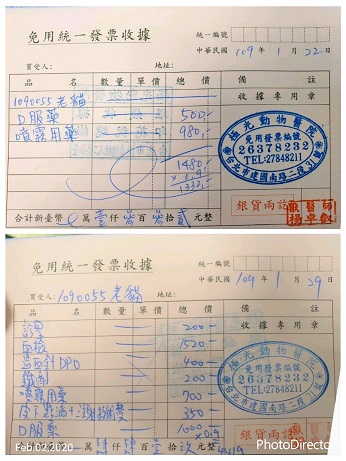 免用統一發票收據
統一編號
中華民國 109 年 1 月 22 日
買受人: 地址:
品名 數量 單價 總價 備註
收據專用章
1090055 老貓
口服藥 500
噴霧用藥 980
1480
1332
極光動物醫院
免用發票編號
26378232
TEL:27848211
台北市建國南路二段31號
銀貨兩訖
獸醫師
合計新臺幣 萬壹仟 百 拾貳元整
免用統一發票收據
統一編號
中華民國 109 年 1 月 29 日
買受人: 1090055 老貓 地址:
品名 數量 單價 總價 備註
收據專用章
200
血檢 1520
400
200
噴霧用藥 700
350
口服藥 1000
極光動物醫院
免用發票編號
26378232
TEL:27848211
台北市建國南路二段31號
銀貨兩訖
Feb.02,2020
PhotoDirector